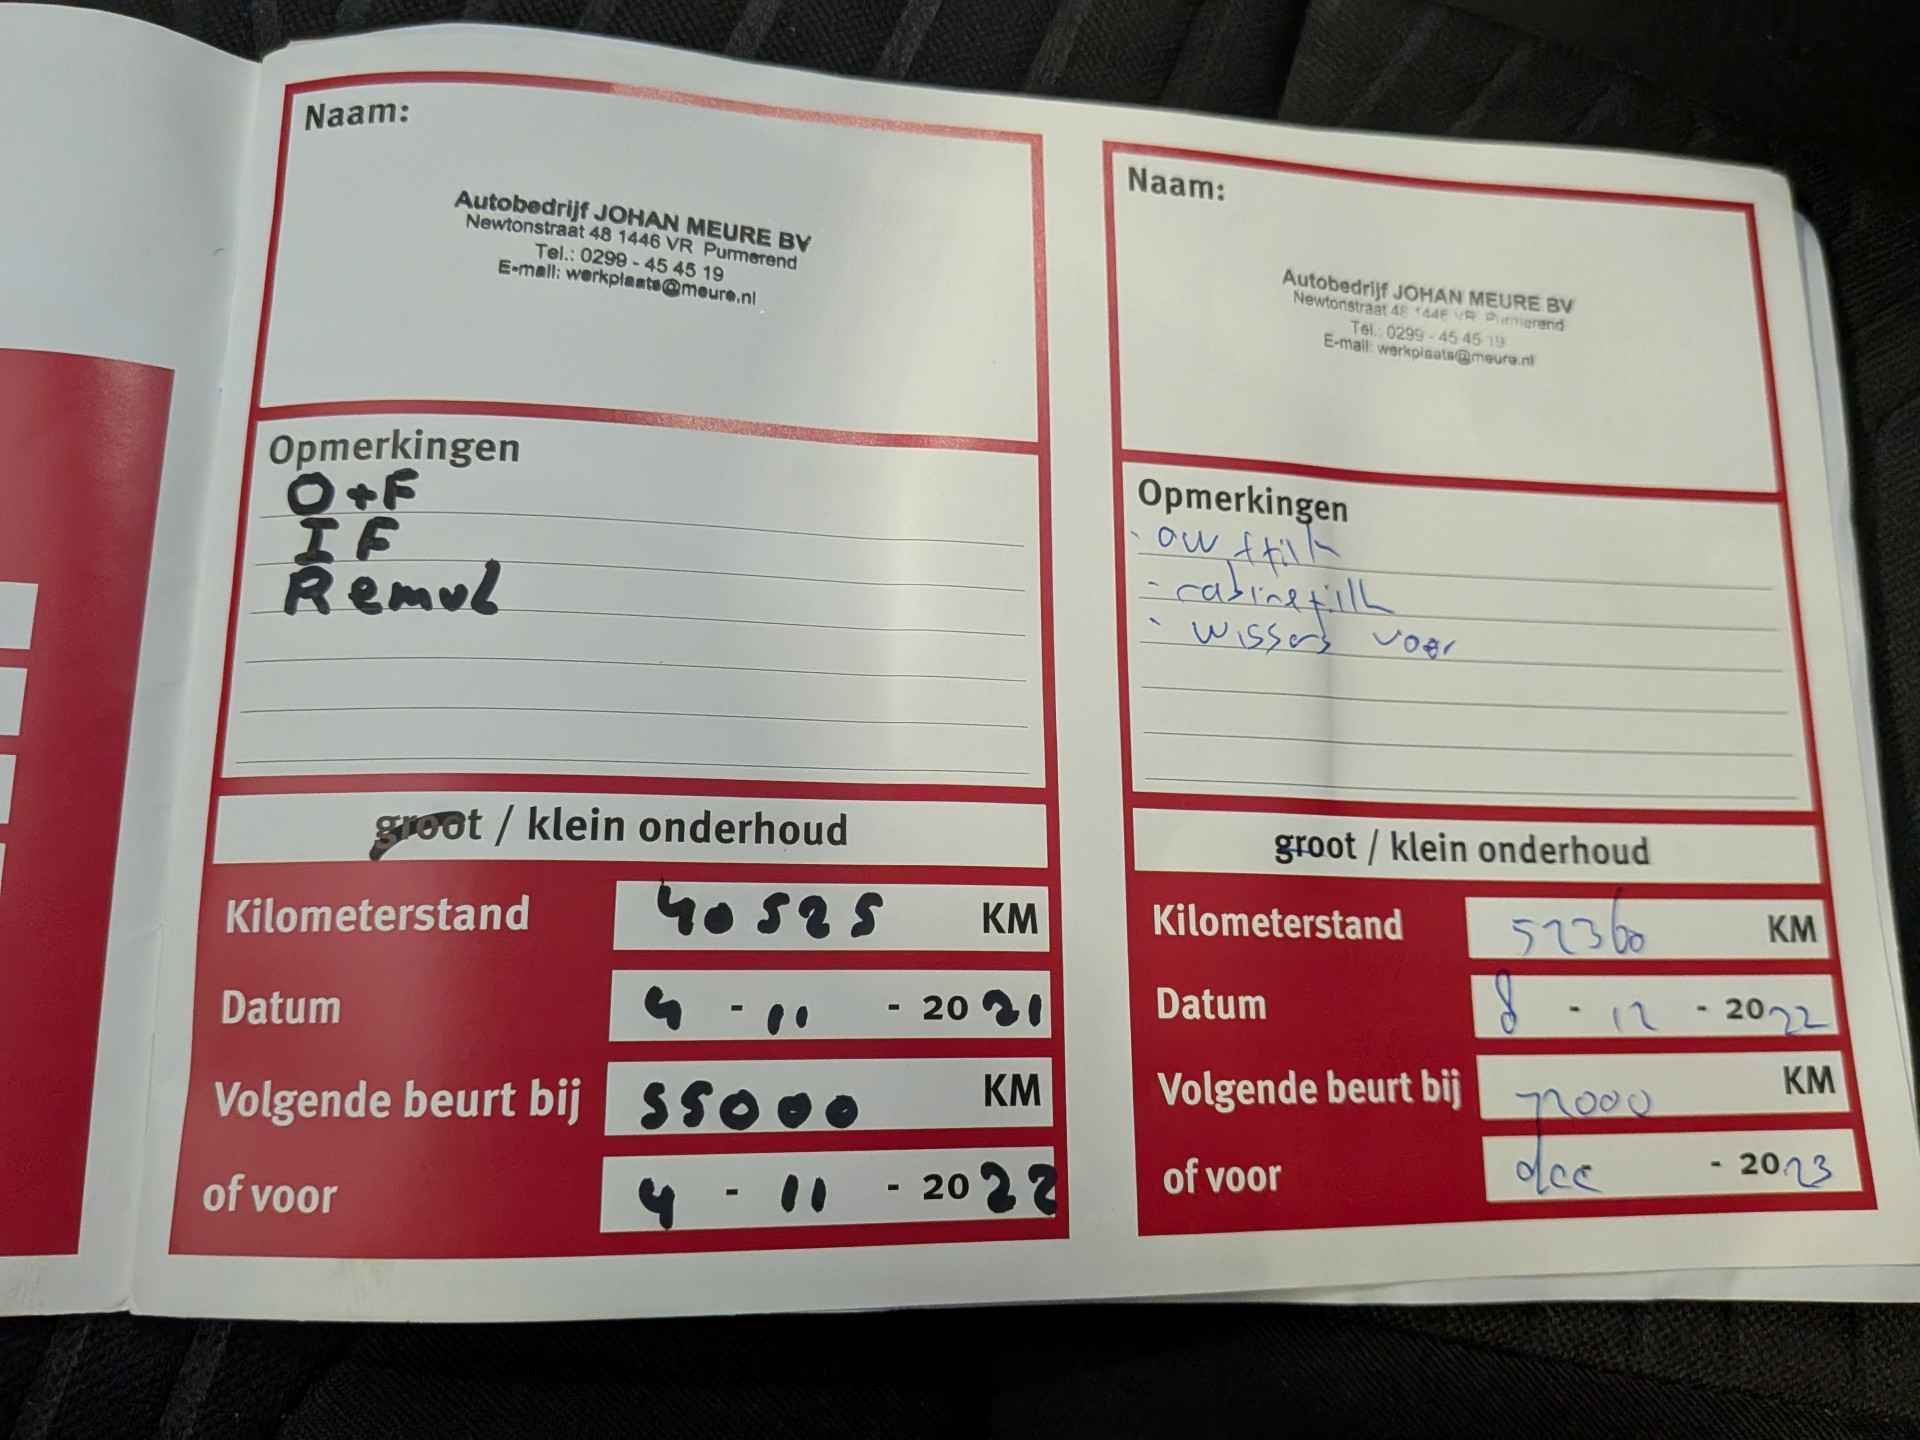 Naam:
Autobedrijf JOHAN MEURE BV
Newtonstraat 48 1446 VR Purmerend
Tel.: 0299 - 45 45 19
E-mail: werkplaats@meure.nl
Opmerkingen
O+F
IF
Remvl
groot / klein onderhoud
Kilometerstand 40525 KM
Datum 4 - 11 - 2021
Volgende beurt bij 55000 KM
of voor 4 - 11 - 2022
Naam:
Autobedrijf JOHAN MEURE BV
Newtonstraat 48 1446 VR Purmerend
Tel.: 0299 - 45 45 19
E-mail: werkplaats@meure.nl
Opmerkingen
- cabinefilt
- wissers voor
groot / klein onderhoud
Kilometerstand 52360 KM
Datum 8 - 12 - 2022
Volgende beurt bij 72000 KM
of voor dec - 2023